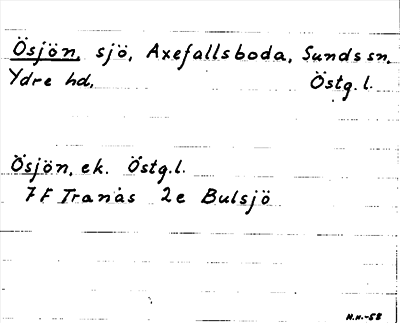 Ösjön, sjö, Axefallsboda, Sunds sn,
Ydre hd, Östg.l.
Ösjön, ek. Östg.l.
7F Tranås 2e Bulsjö
H.H.-58